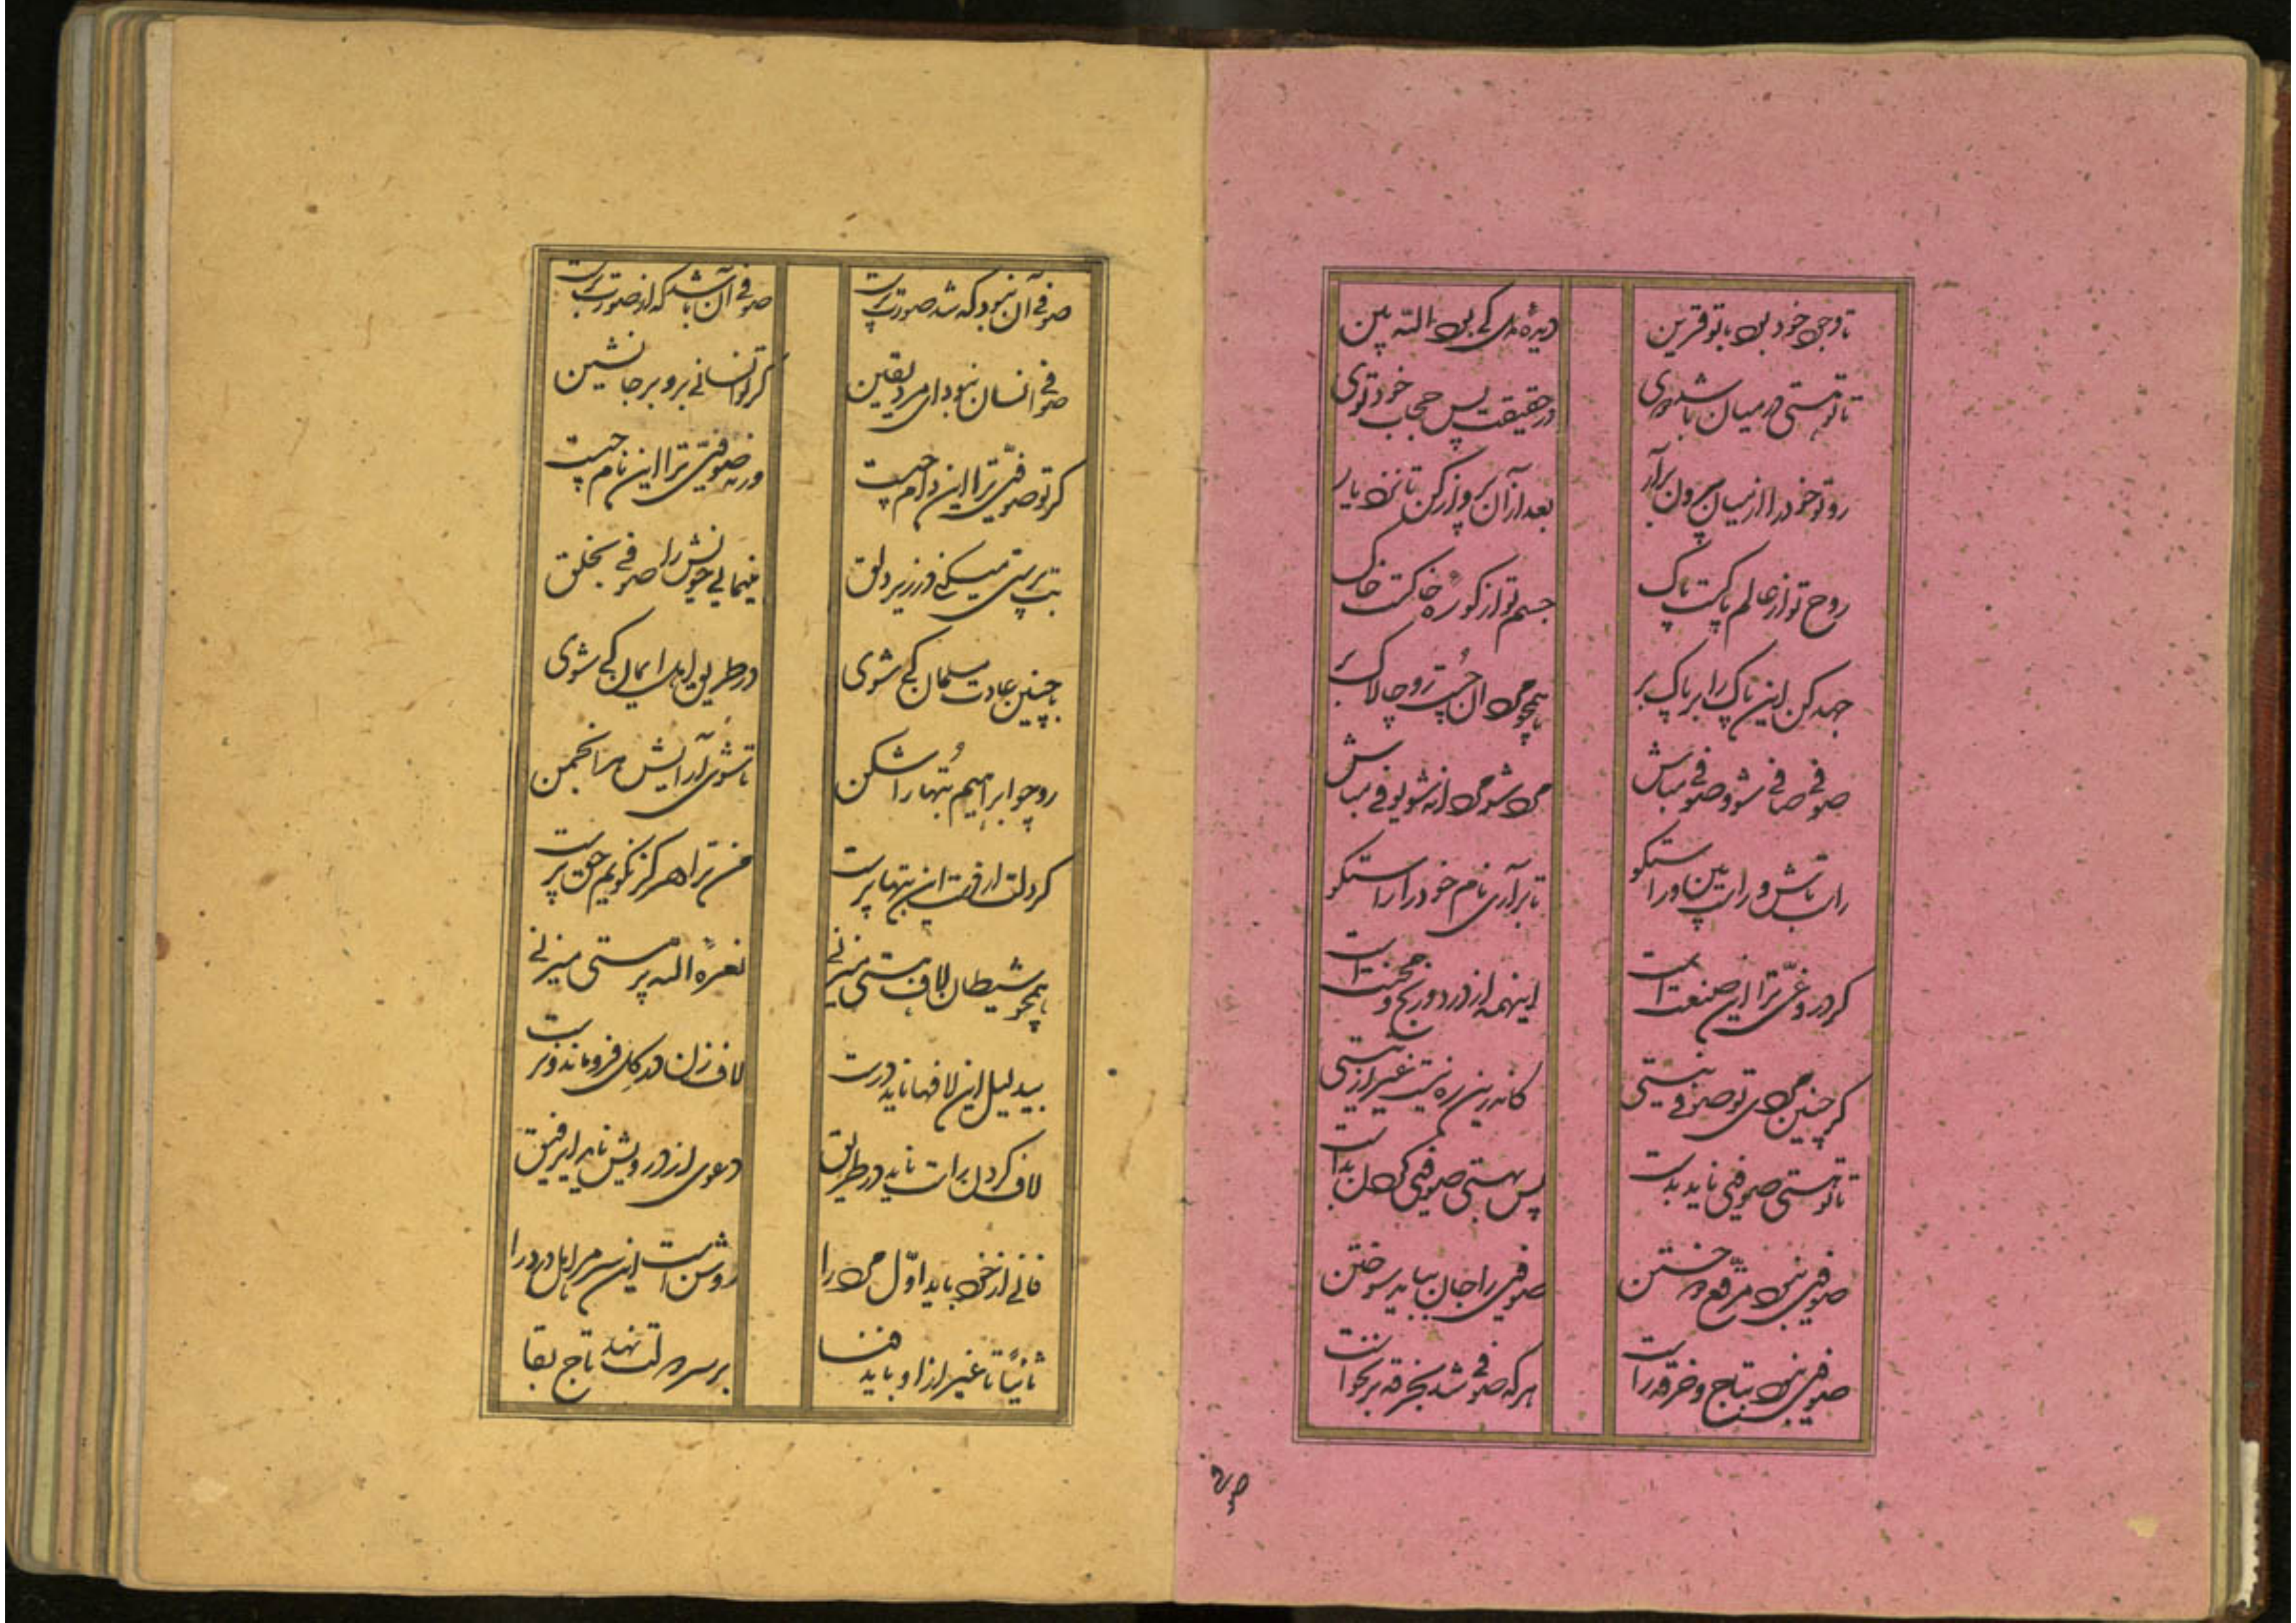 تا وجود خود بود با تو قرین
دیده دل کی بود الله بین
تا تو هستی در میان باشد دوی
در حقیقت پس حجاب خود توی
رو تو خود را از میان بیرون برآر
بعد از آن پرواز کن تا نزد یار
روح تو از عالم پاکست پاک
جسم تو از کوره خاکست خاک
جهد کن این پاک را بر پاک بر
همچو مردان چست رو چالاک بر
صوفی صافی شو و صوفی مباش
مرد شو مردانه شو یوفی مباش
راست باش و راست بین و راستکو
تا برآری نام خود را راستکو
کر دروغی ترا این صنعت است
اینهمه از درد و رنج و محنت است
کر چنین مردی تو صوفی نیستی
کاندرین ره نیست غیر از نیستی
تا تو هستی صوفی ناید بدست
پس بهستی صوفی کردن بداست
صوفی نبود مرقع دوختن
صوفی را جان بباید سوختن
صوفی نبود بتاج و خرقه راست
هر که صوفی شد بخرقه برنخواست
صوفی آن نبود که شد صورت پرست
صوفی آن باشد که از صورت برست
صوفی انسان نبود ای مرد یقین
کر تو انسانی برو بر جا نشین
کر تو صوفی ترا این دام چیست
ورنه صوفی ترا این نام چیست
بت پرستی میکنی در زیر دلق
مینمایی خویش را صوفی بخلق
با چنین عادت مسلمان کی شوی
در طریق اهل ایمان کی شوی
رو چو ابراهیم بتها را شکن
تا شوی آرایش هر انجمن
کر دلت از قت این بتها پرست
من ترا هرکز نکویم حق پرست
همچو شیطان لاف هستی میزنی
نعره الله پرستی میزنی
بیدلیل این لافها ناید درست
لاف زن در کل فروماند و بست
لاف کردن راست ناید در طریق
دعوی از درویش ناید ای رفیق
فانی از خود باید اول مرد را
روشن است این سر مر اهل درد را
ثانیا تا غیر از او باید فنا
بر سر دلت نهد تاج بقا
صوفی